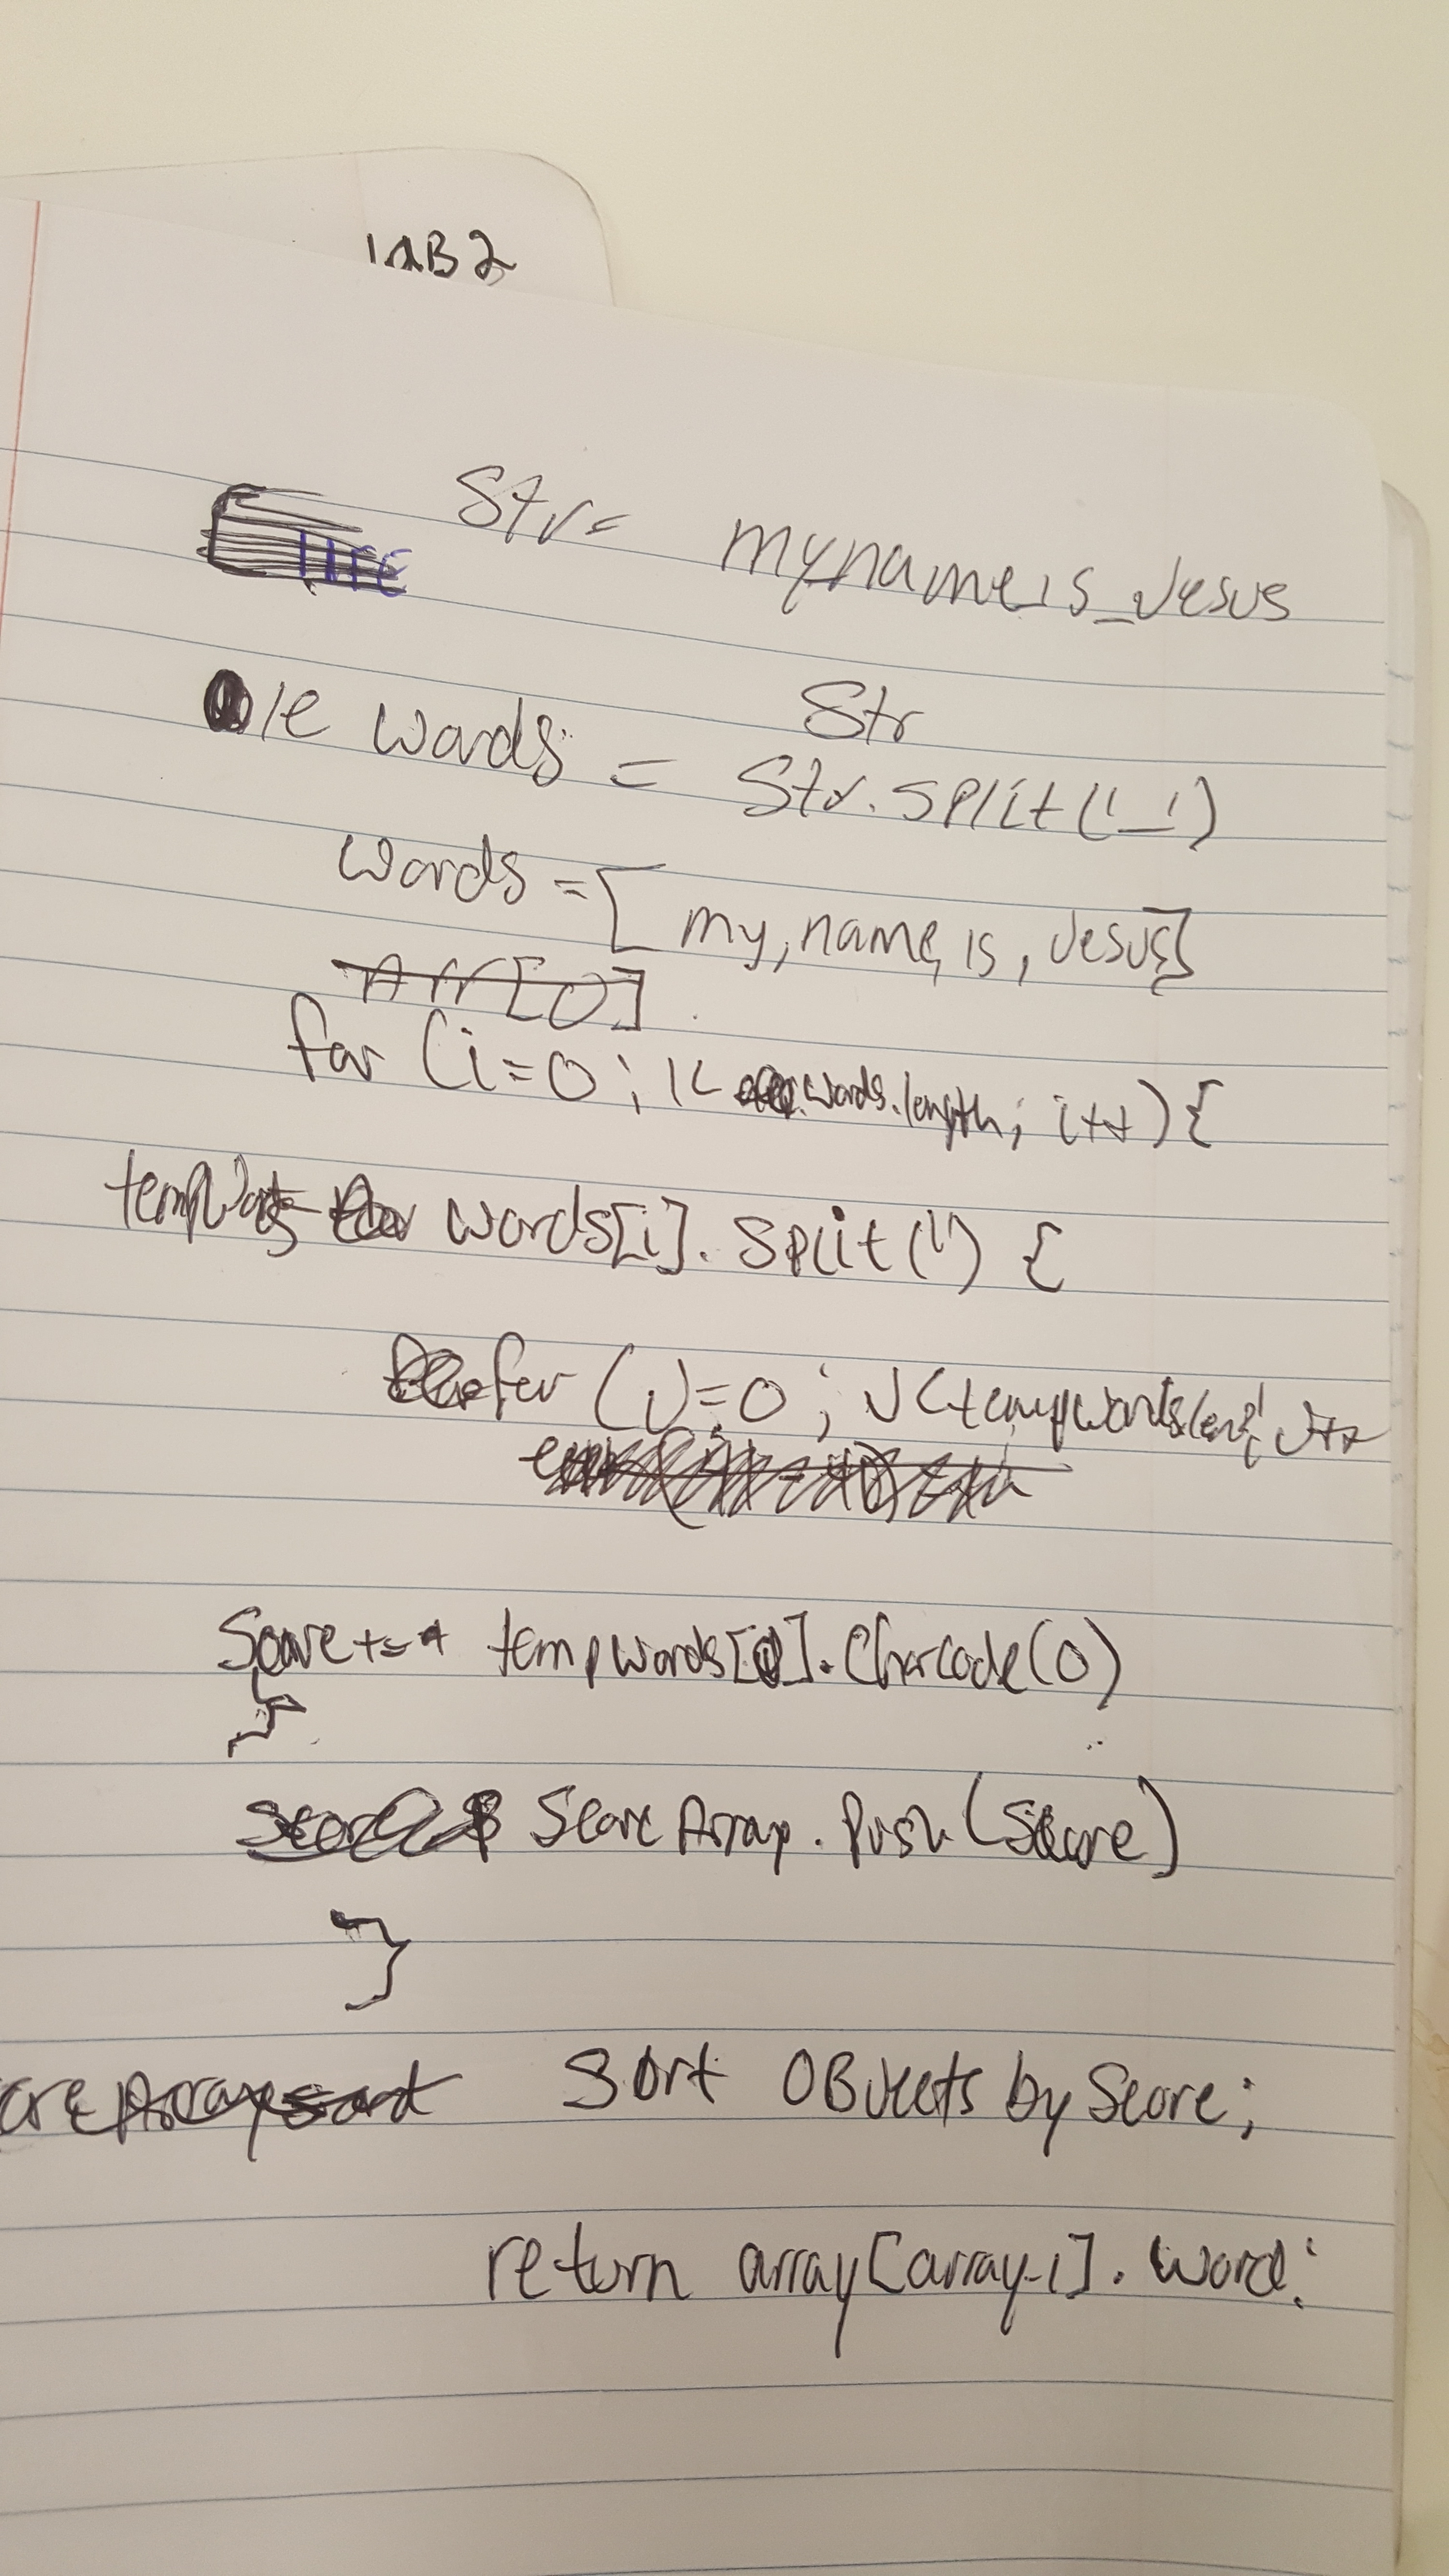 LAB 2
Str=
my_name_is_Jesus
Str
ie words = Str.split('_')
words = [my, name, is, Jesus]
Arr[0]
for (i=0; i< words.length; i++) {
tempWords = words[i].split('') {
for (J=0; J<tempwords.len; J++
Score += tempwords[0].Charcode(0)
}
ScoreArray.Push(Score)
}
Sort OBJects by Score;
return array[array-1].word;